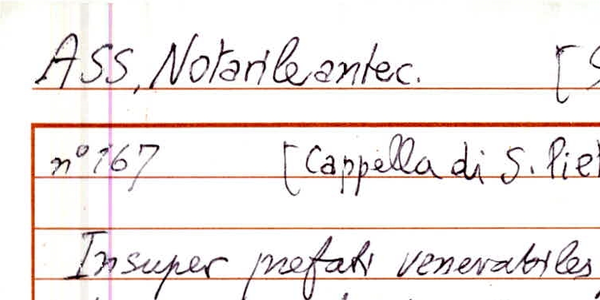 ASS, Notarile antec. [S
n° 167 [Cappella di S. Piet
Insuper prefati venerabiles